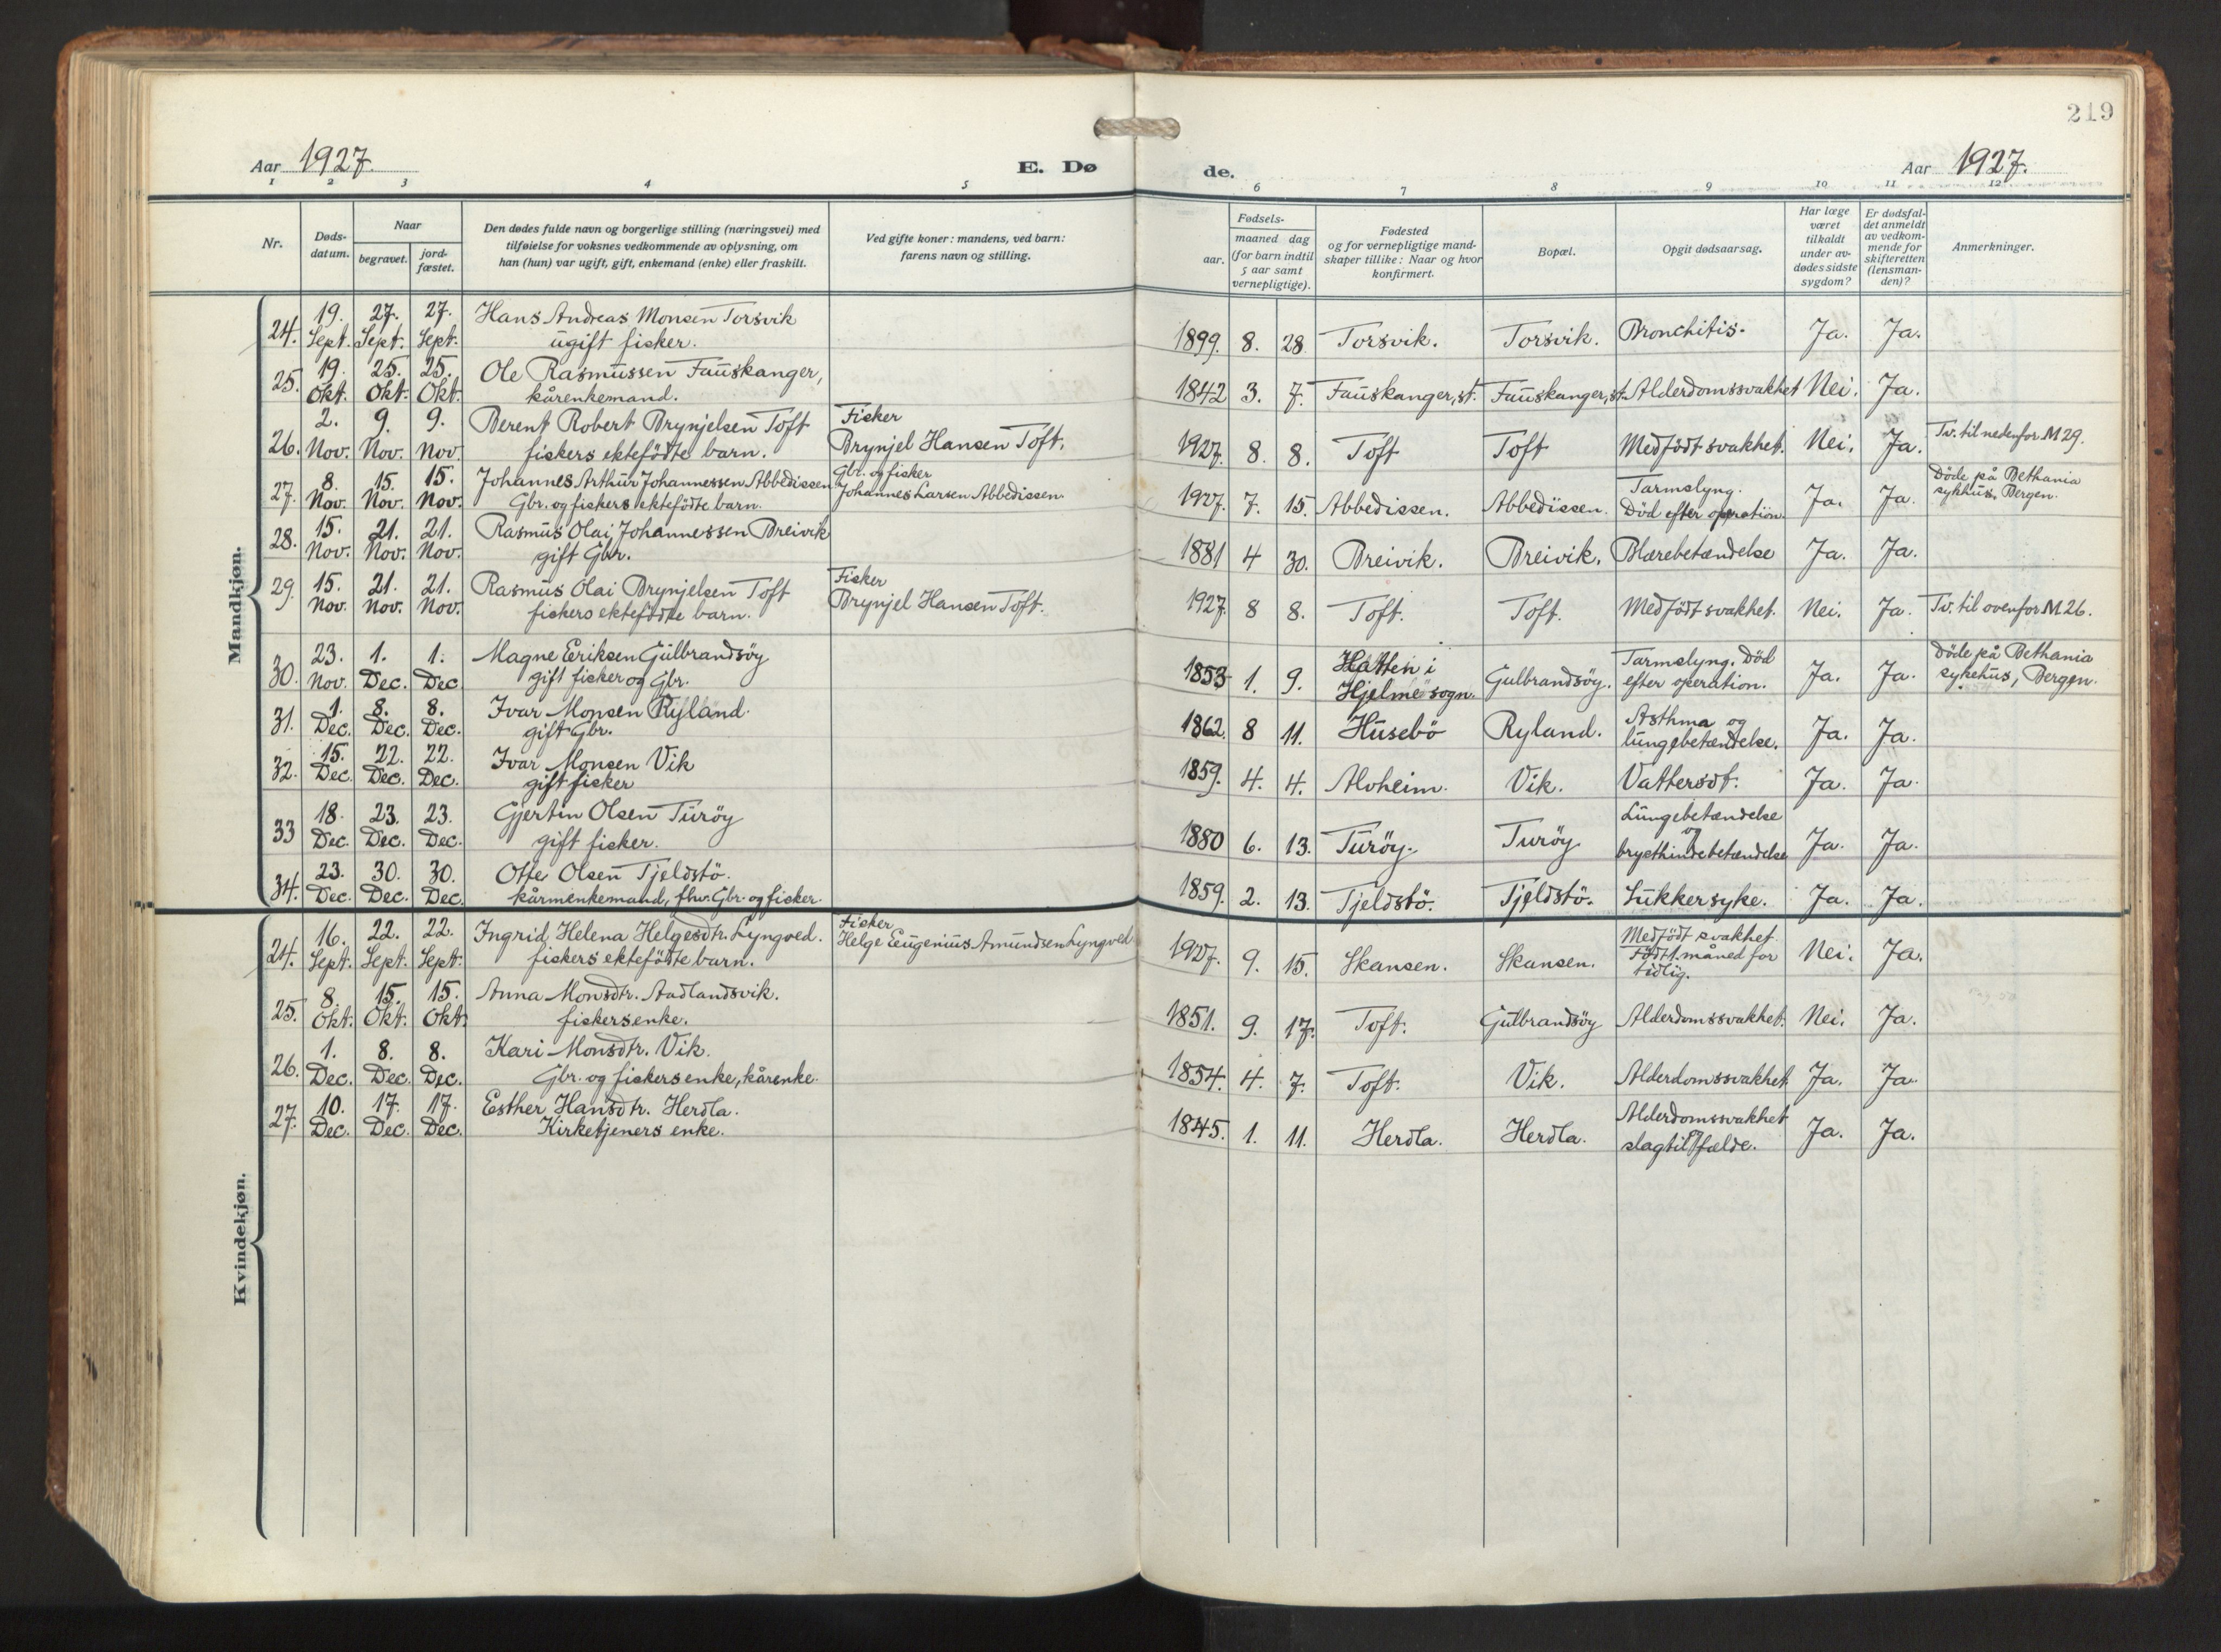 219
Aar 1927.
E. Dø
de.
Aar 1927.
1 2 3 4 5 6 7 8 9 10 11 12
Nr.
Døds-
datum.
Naar
begravet.
jord-
fæstet.
Den dødes fulde navn og borgerlige stilling (næringsvei) med
tilføielse for voksnes vedkommende av oplysning, om
han (hun) var ugift, gift, enkemand (enke) eller fraskilt.
Ved gifte koner: mandens, ved barn:
farens navn og stilling.
Fødsels-
aar.
maaned dag
(for barn indtil
5 aar samt
vernepligtige).
Fødested
og for vernepligtige mand-
skaper tillike: Naar og hvor
konfirmert.
Bopæl.
Opgit dødsaarsag.
Har læge
været
tilkaldt
under av-
dødes sidste
sygdom?
Er dødsfal-
det anmeldt
av vedkom-
mende for
skifteretten
(lensman-
den)?
Anmerkninger.
Mandkjøn.
24. 19. Sept. 27. Sept. 27. Sept. Hans Andreas Monsen Torsvik
ugift fisker.
1899. 8. 28 Torsvik. Torsvik. Bronchitis. Ja. Ja.
25. 19. Okt. 25. Okt. 25. Okt. Ole Rasmussen Fauskanger,
kårenkemand.
1842 3. 7. Fauskanger, st. Fauskanger, st. Alderdomssvakhet Nei. Ja.
26. 2. Nov. 9. Nov. 9. Nov. Berent Robert Brynjelsen Toft
fiskers ektefödte barn.
Fisker
Brynjel Hansen Toft.
1927. 8. 8. Toft Toft Medfödt svakhet. Nei. Ja. Tv. til nedenfor M 29.
27. 8. Nov. 15. Nov. 15. Nov. Johannes Arthur Johannessen Abbedissen
Gbr. og fiskers ektefödte barn.
Gbr. og fisker
Johannes Larsen Abbedissen.
1927. 7. 15. Abbedissen. Abbedissen. Tarmslyng.
Död efter operation. Ja. Ja. Döde på Bethania
sykhus, Bergen.
28. 15. Nov. 21. Nov. 21. Nov. Rasmus Olai Johannessen Breivik
gift Gbr.
1881 4 30. Breivik. Breivik. Blærebetændelse Ja. Ja.
29. 15. Nov. 21. Nov. 21. Nov. Rasmus Olai Brynjelsen Toft
fiskers ektefödte barn.
Fisker
Brynjel Hansen Toft.
1927. 8 8. Toft. Toft. Medfödt svakhet. Nei. Ja. Tv. til ovenfor M 26.
30. 23. Nov. 1. Dec. 1. Dec. Magne Eriksen Gulbrandsöy
gift fisker og Gbr.
1853 1. 9. Hatten i
Hjelme sogn. Gulbrandsöy. Tarmslyng. Död
efter operation. Ja. Ja. Döde på Bethania
sykehus, Bergen.
31. 1. Dec. 8. Dec. 8. Dec. Ivar Monsen Ryland.
gift Gbr.
1862. 8 11. Husebö Ryland. Asthma og
lungebetændelse. Ja. Ja.
32. 15. Dec. 22. Dec. 22. Dec. Ivar Monsen Vik
gift fisker
1859. 4. 4. Alvheim. Vik. Vattersot. Ja. Ja.
33 18. Dec. 23. Dec. 23. Dec. Gjertin Olsen Turöy
gift fisker.
1880 6. 13. Turöy. Turöy Lungebetændelse
og
brysthindebetændelse Ja. Ja.
34. 23. Dec. 30. Dec. 30. Dec. Otte Olsen Tjeldstö.
kårmenkemand, fhv. Gbr. og fisker.
1859. 2. 13. Tjeldstö. Tjeldstö. Sukkersyke. Ja. Ja.
Kvindekjøn.
24. 16. Sept. 22. Sept. 22. Sept. Ingrid Helena Helgesdtr. Lyngved.
fiskers ektefödte barn.
Fisker
Helge Eugenius Amundsen Lyngved
1927. 9. 15. Skansen. Skansen. Medfödt svakhet.
Födt 1. måned for
tidlig. Nei. Ja.
25. 8. Okt. 15. Okt. 15. Okt. Anna Monsdtr. Aadlandsvik.
fiskersenke.
1851. 9. 17. Toft. Gulbrandsöy Alderdomssvakhet. Nei. Ja.
26. 1. Dec. 8. Dec. 8. Dec. Kari Monsdtr. Vik.
Gbr. og fiskersenke, kårenke.
1854. 4. 7. Toft. Vik. Alderdomssvakhet Ja. Ja.
27. 10. Dec. 17. Dec. 17. Dec. Esther Hansdtr. Herdla.
Kirketjeners enke.
1845. 1. 11. Herdla. Herdla. Alderdomssvakhet
og
slagtilfælde. Ja. Ja.